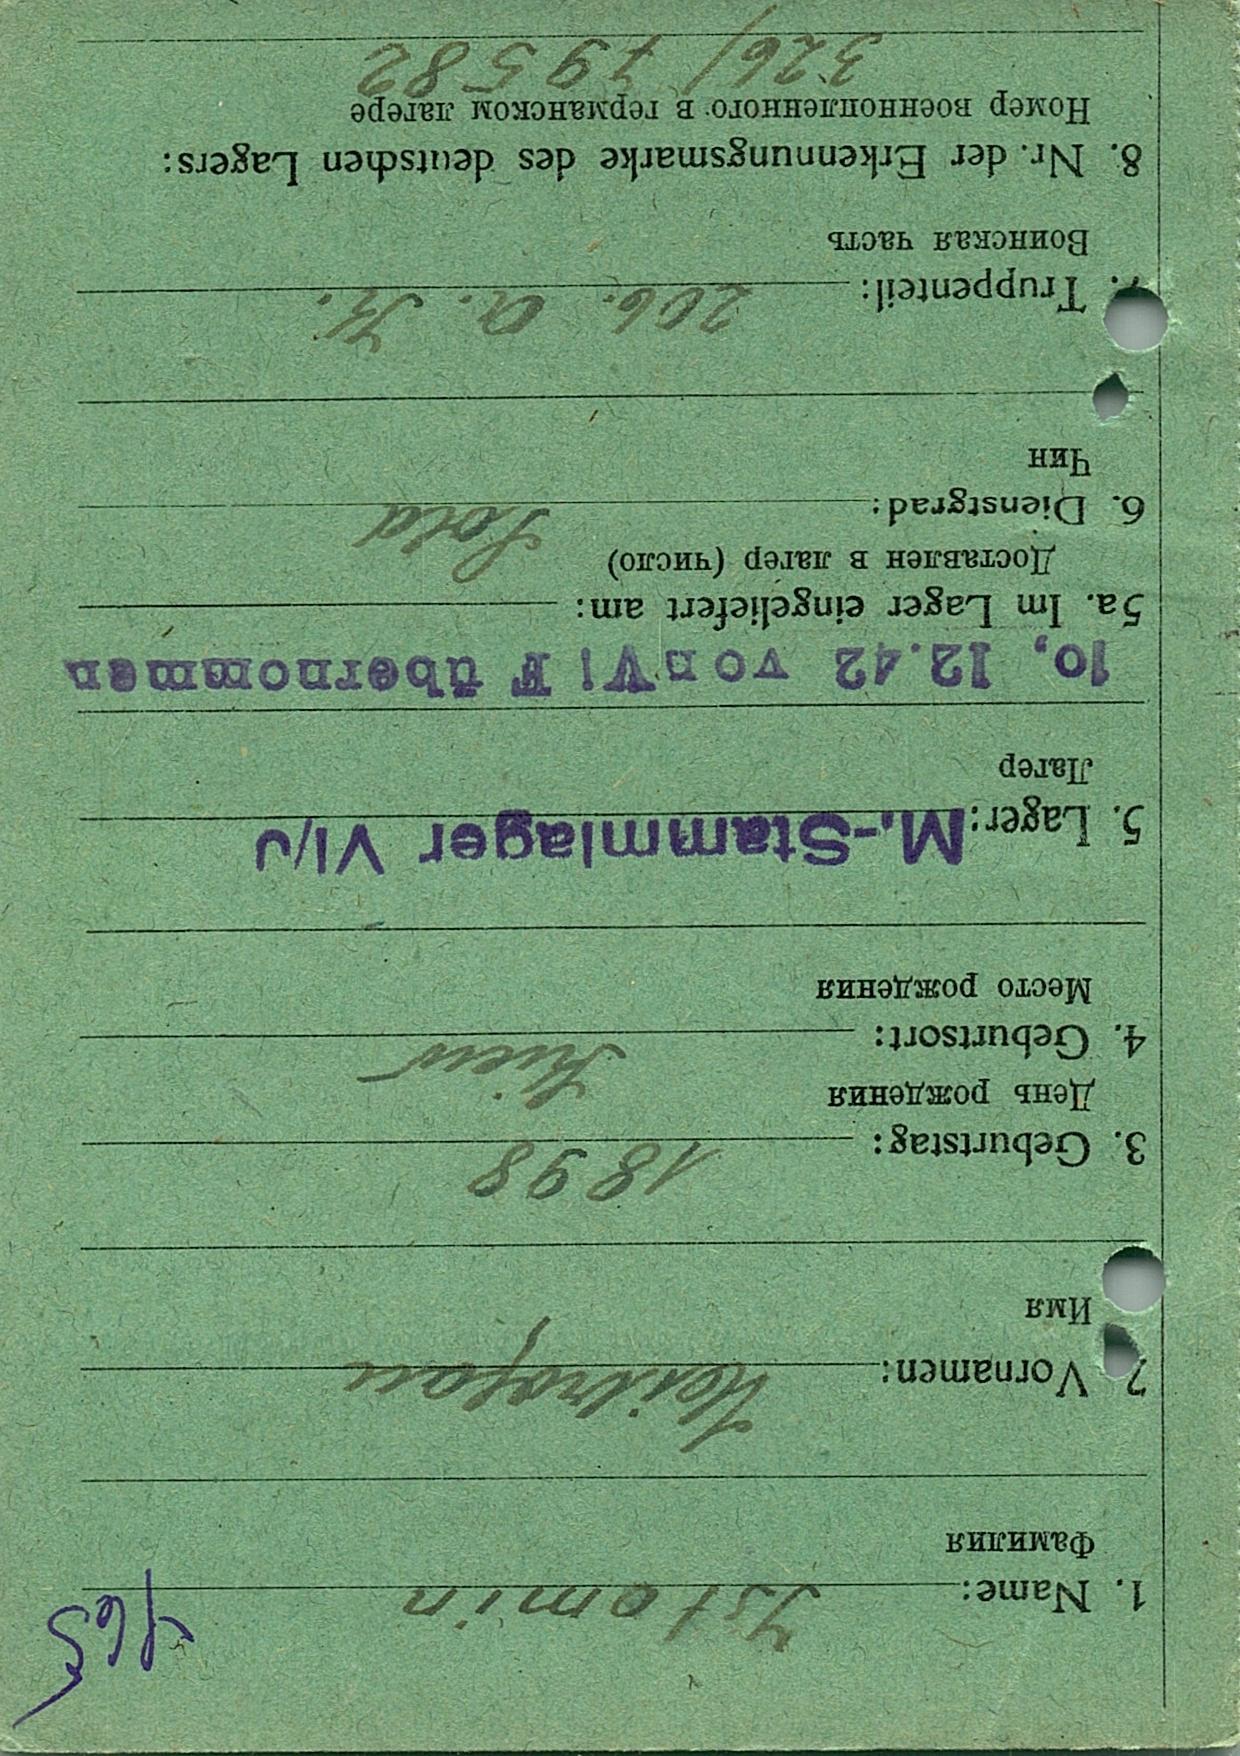 765
1. Name: Istomin
Фамилия
2. Vornamen: Mitrofan
Имя
3. Geburtstag: 1898
День рождения
4. Geburtsort: Kiew
Место рождения
5. Lager: M.-Stammlager VI/J
Лагерь
10. 12.42 von VI F übernommen
5a. Im Lager eingeliefert am:
Доставлен в лагерь (число)
6. Dienstgrad: Sold
Чин
7. Truppenteil: 206. A. K.
Воинская часть
8. Nr. der Erkennungsmarke des deutschen Lagers:
Номер военнопленного в германском лагере
326/ 79582